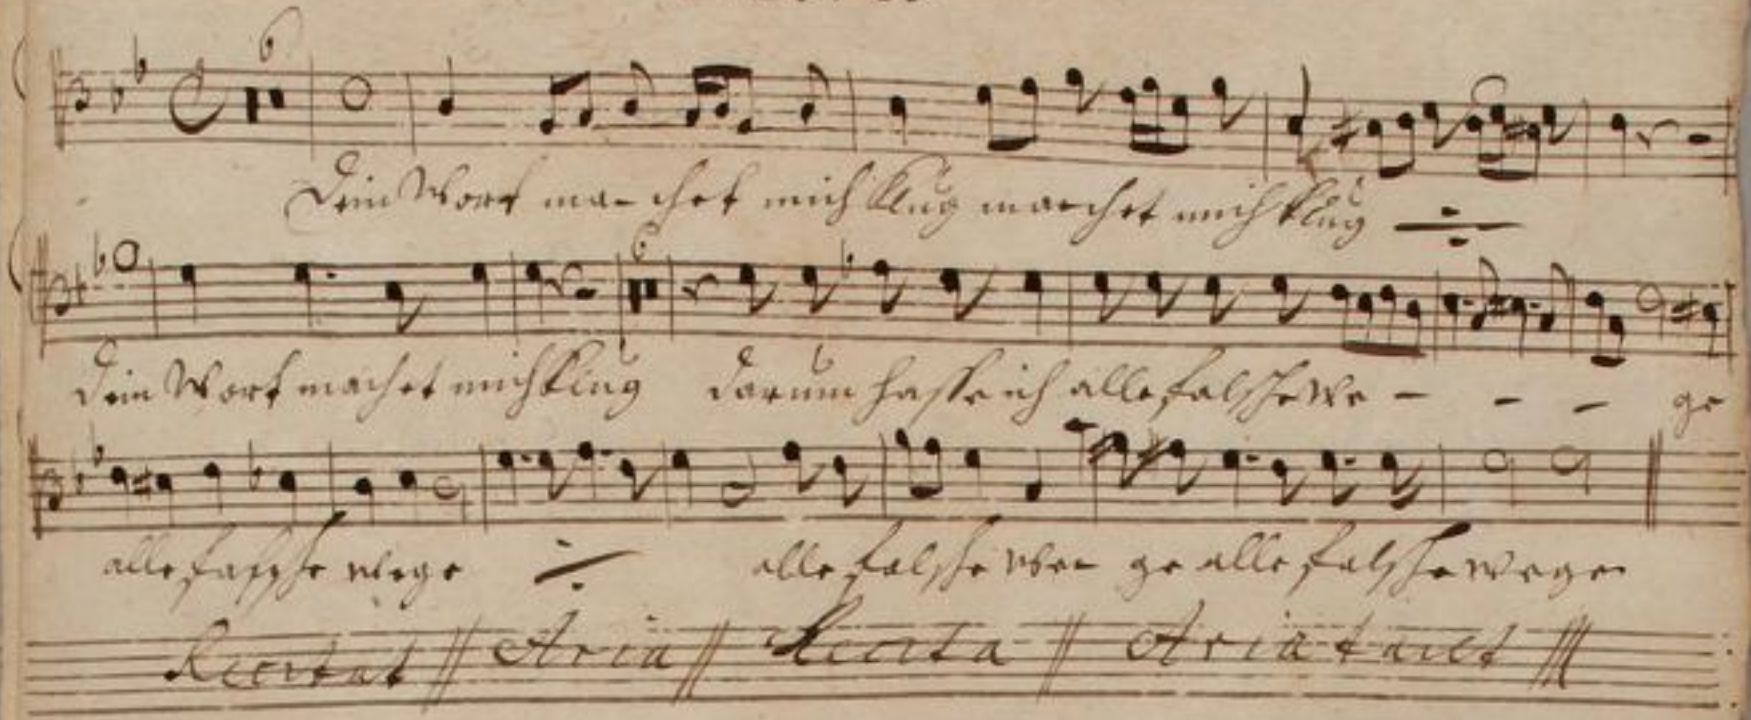 6
Dein Wort ma- chet mich klug machet mich klug
6
Dein Wort machet mich klug darum hasse ich alle falsche We - - - ge
alle falsche wege alle falsche we- ge alle falsche wege
Recitat || Aria || Recita || Aria tacet